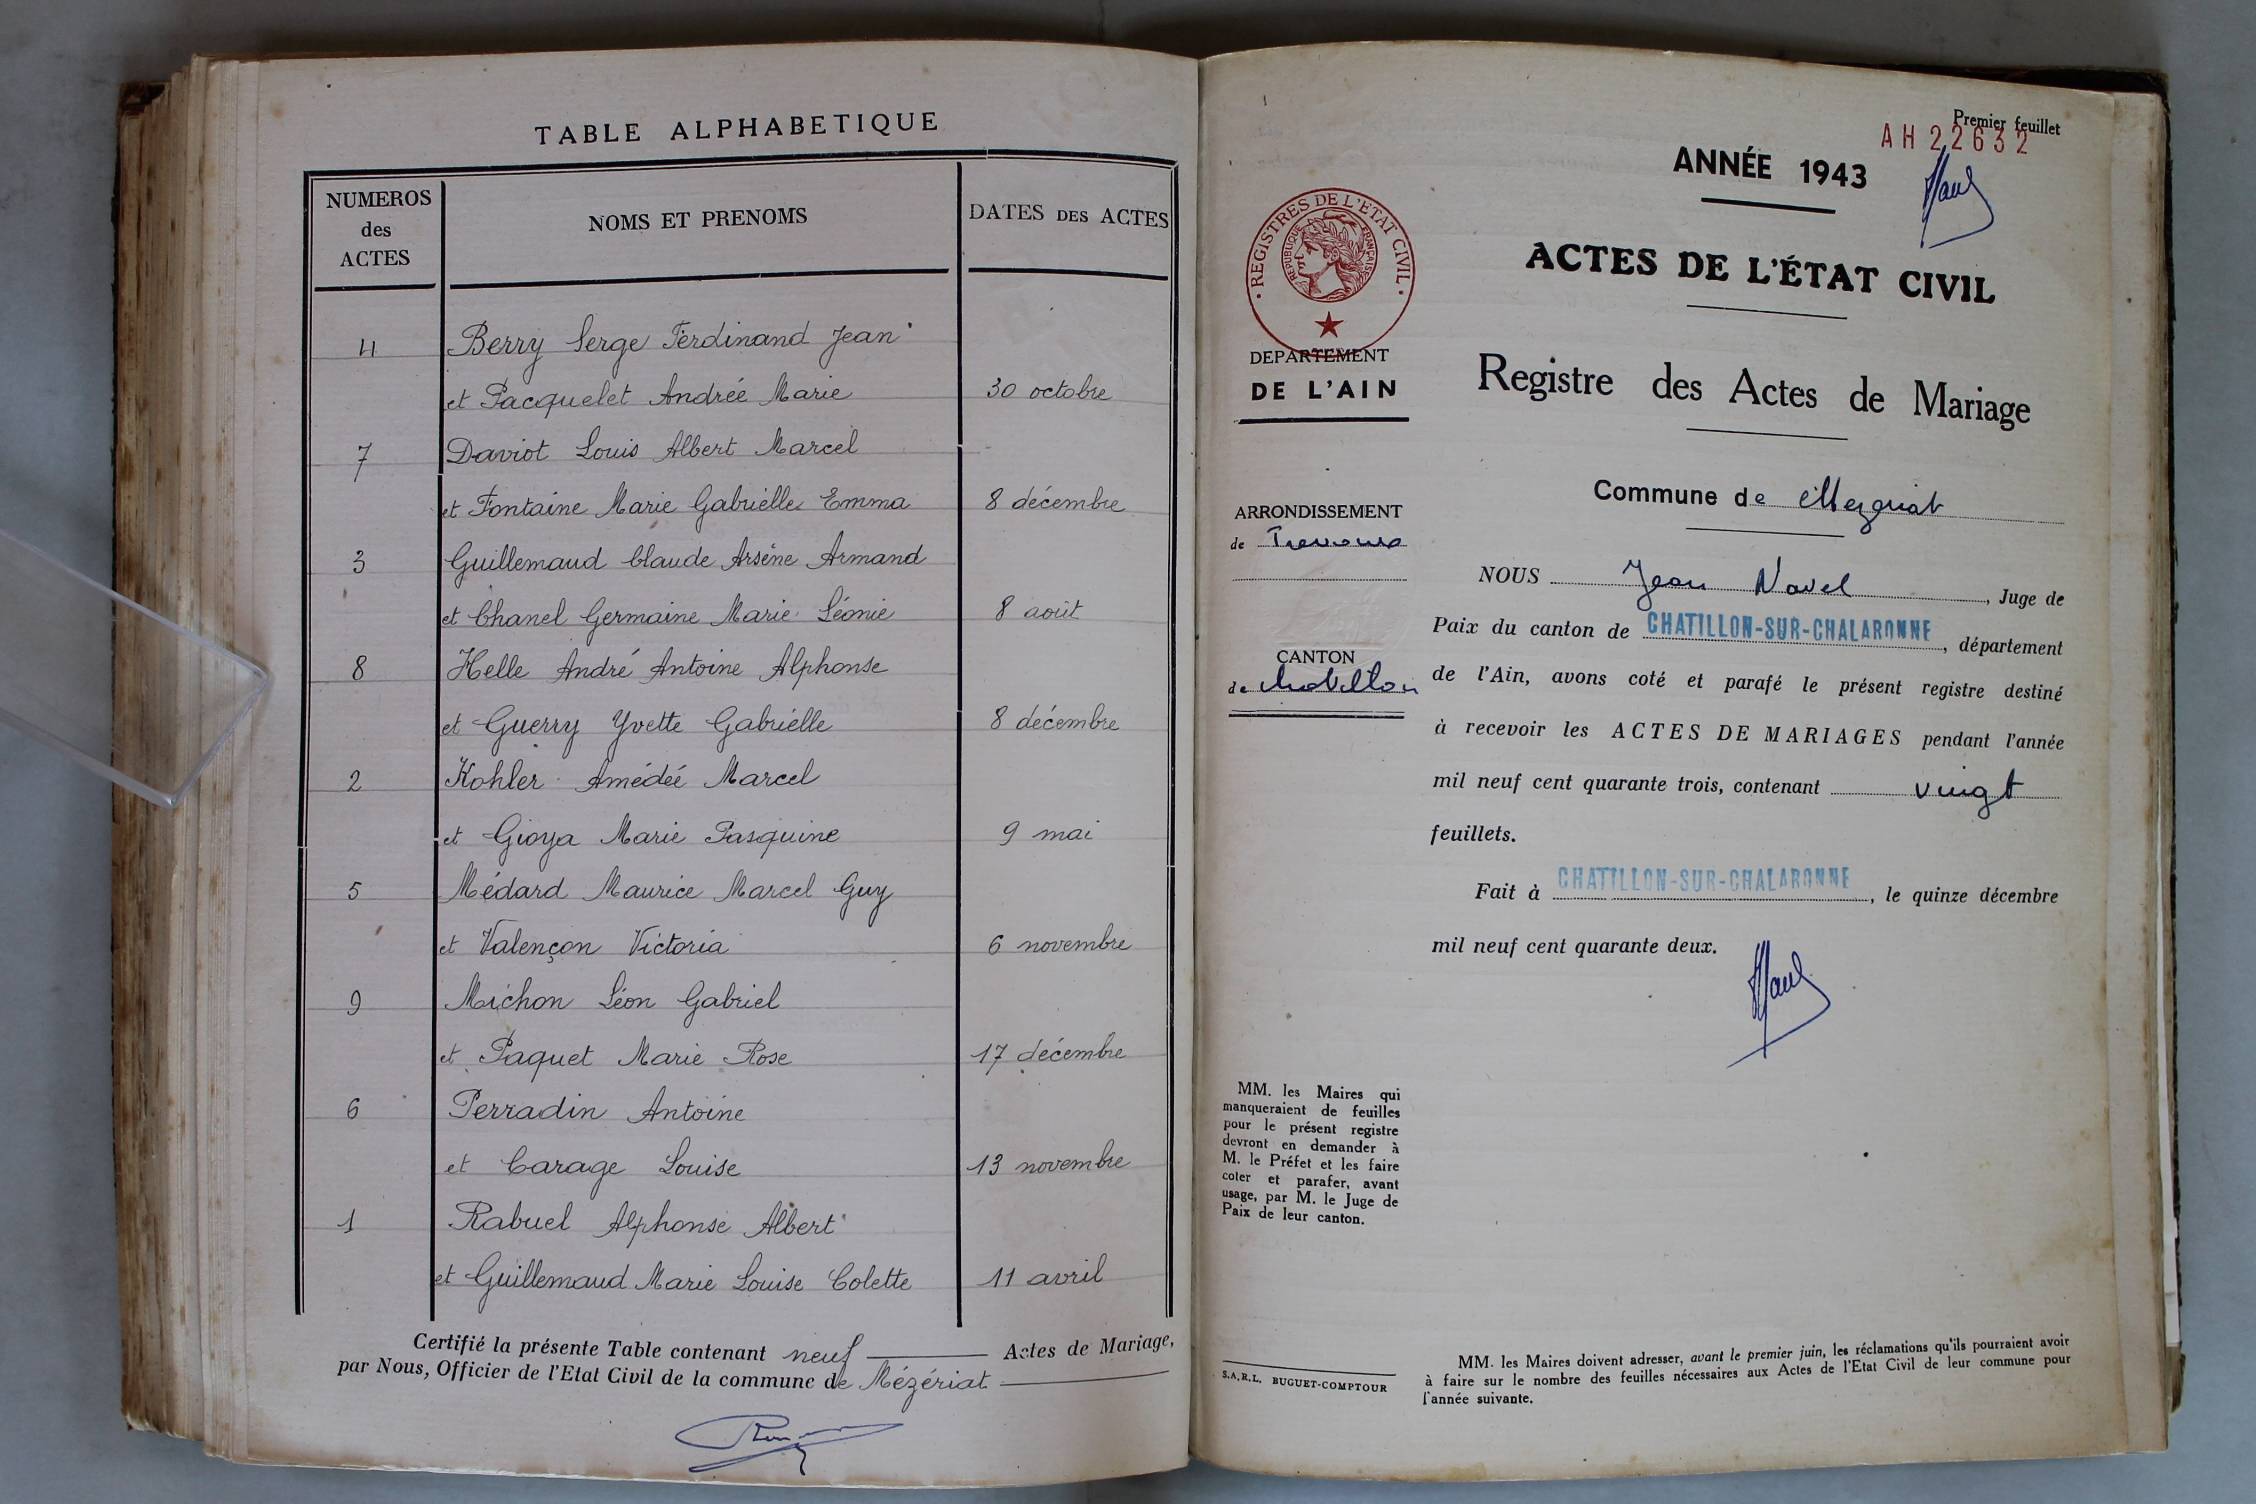 TABLE ALPHABETIQUE
NUMEROS
des
ACTES
NOMS ET PRENOMS
DATES DES ACTES
4 Berry Serge Ferdinand Jean
et Pacquelet Andrée Marie 30 octobre
7 Daviot Louis Albert Marcel
et Fontaine Marie Gabrielle Emma 8 décembre
3 Guillemaud Claude Arsène Armand
et Chanel Germaine Marie Léonie 8 août
8 Helle André Antoine Alphonse
et Guerry Yvette Gabrielle 8 décembre
2 Kohler Amédéé Marcel
et Gioya Marie Pasquine 9 mai
5 Médard Maurice Marcel Guy
et Valençon Victoria 6 novembre
9 Michon Léon Gabriel
et Paquet Marie Rose 17 décembre
6 Perradin Antoine
et Carage Louise 13 novembre
1 Rabuel Alphonse Albert
et Guillemaud Marie Louise Colette 11 avril
Certifié la présente Table contenant neuf Actes de Mariage,
par Nous, Officier de l'Etat Civil de la commune de Mézériat
Premier feuillet
AH 22632
ANNÉE 1943
REGISTRES DE L'ETAT CIVIL
REPUBLIQUE FRANÇAISE
ACTES DE L'ÉTAT CIVIL
DEPARTEMENT
DE L'AIN
Registre des Actes de Mariage
Commune de Mezeriat
ARRONDISSEMENT
de Trevoux
CANTON
de Chatillon
NOUS Jean Navel, Juge de
Paix du canton de CHATILLON-SUR-CHALARONNE, département
de l'Ain, avons coté et parafé le présent registre destiné
à recevoir les ACTES DE MARIAGES pendant l'année
mil neuf cent quarante trois, contenant vingt
feuillets.
Fait à CHATILLON-SUR-CHALARONNE, le quinze décembre
mil neuf cent quarante deux.
MM. les Maires qui
manqueraient de feuilles
pour le présent registre
devront en demander à
M. le Préfet et les faire
coter et parafer, avant
usage, par M. le Juge de
Paix de leur canton.
S.A.R.L. BUGUET-COMPTOUR
MM. les Maires doivent adresser, avant le premier juin, les réclamations qu'ils pourraient avoir
à faire sur le nombre des feuilles nécessaires aux Actes de l'Etat Civil de leur commune pour
l'année suivante.